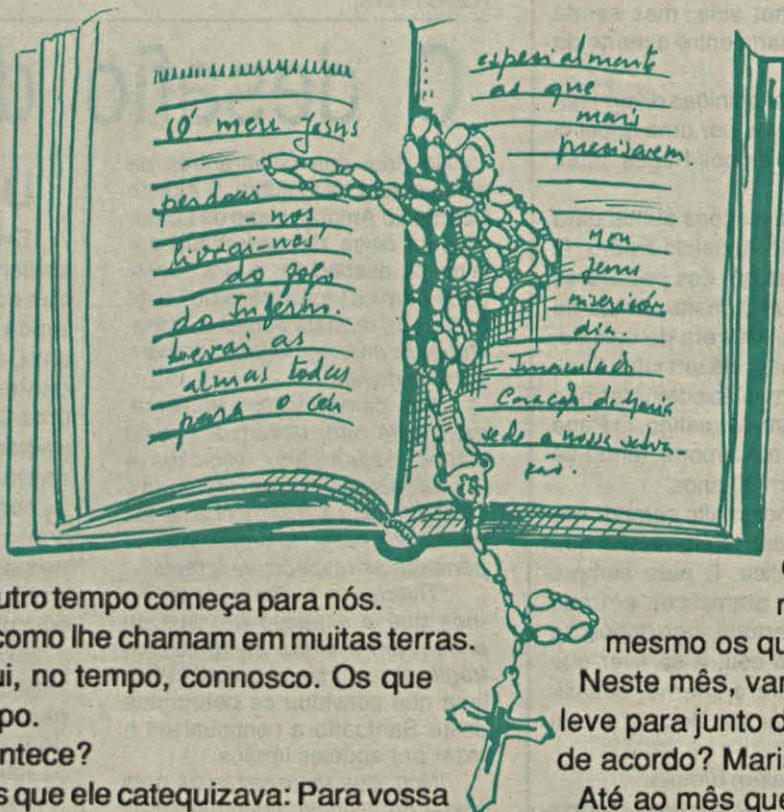 Ó meu Jesus
perdoai
nos,
livrai-nos
do fogo
do Inferno.
Levai as
almas todas
para o céu
especialmente
as que
mais
precisarem.
Meu
Jesus
misericór
dia.
Imaculado
Coração de Maria
sede a nossa salva-
ção.
utro tempo começa para nós.
como lhe chamam em muitas terras.
ui, no tempo, connosco. Os que
po.
ntece?
s que ele catequizava: Para vossa
mesmo os qu
Neste mês, var
leve para junto d
de acordo? Mari
Até ao mês qu